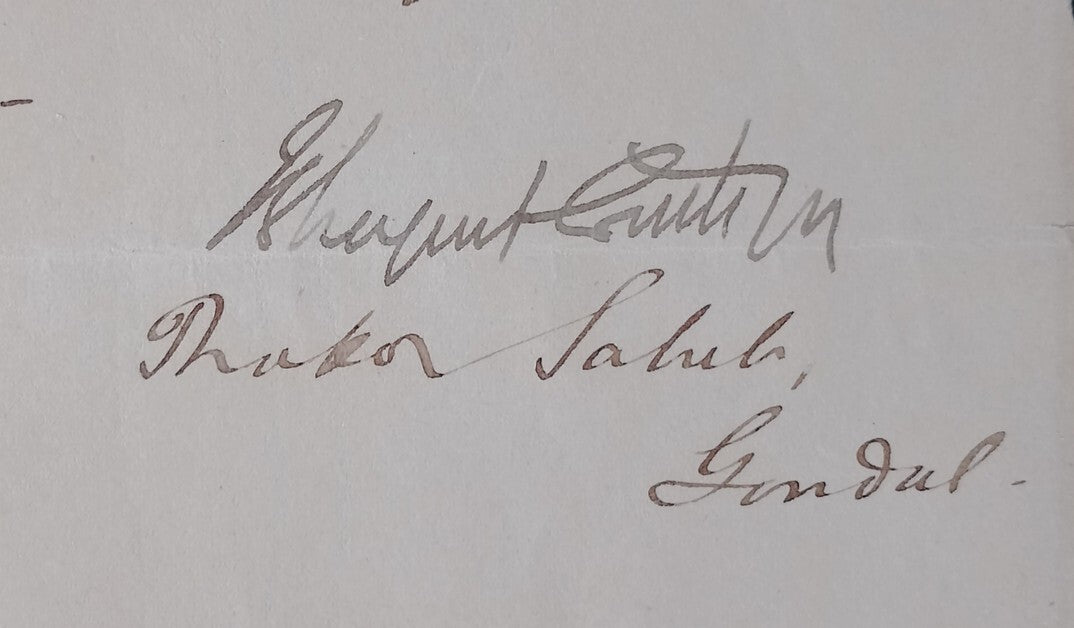 Bhagvat Sinhjee
Thakor Sahib,
Gondal -